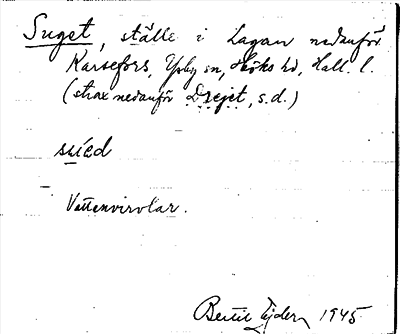 Suget, ställe i Lagan nedanför
Karsefors, Ysby sn, Höks hd, Hall. l.
(strax nedanför Drejet, s.d.)
suǵed
Vattenvirvlar.
Bertil Ejder 1945